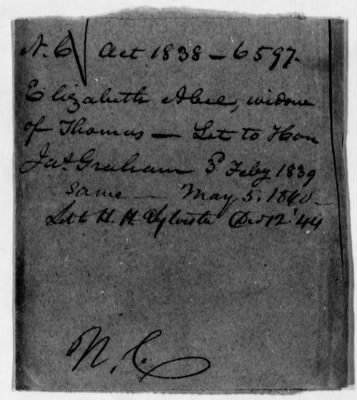 N.C Act 1838 – 6597.
Elizabeth Abee, widow
of Thomas — Let to Hon
Jas Graham 5 Feby 1839
same — May 5. 1840 –
Let to H. H. Sylvester Dec 12 '44
N. C.